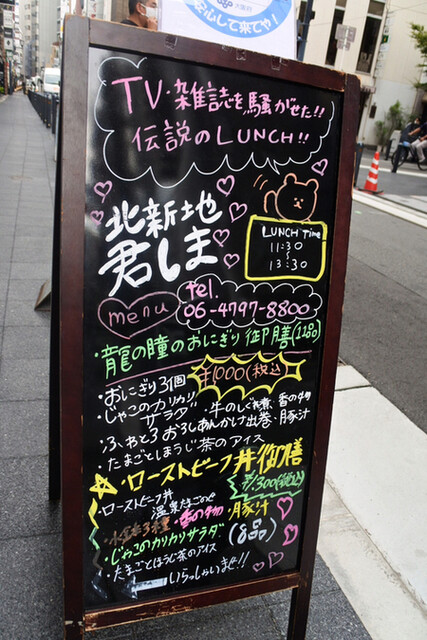 安心して来てや!
TV・雑誌を騒がせた!!
伝説のLUNCH!!
北新地
君しま
LUNCH Time
11:30
~
13:30
menu
tel.
06-4797-8800
・龍の瞳のおにぎり御膳(11品)
¥1000(税込)
・おにぎり3個
・じゃこのカリカリサラダ
・牛のしぐれ煮・香の物
・ふわとろおろしあんかけ出巻・豚汁
・たまごとほうじ茶のアイス
☆・ローストビーフ丼御膳
¥1300(税込)
・ローストビーフ丼
温泉たまごのせ
・小鉢3種・香の物・豚汁
・じゃこのカリカリサラダ
(8品)
・たまごとほうじ茶のアイス
いらっしゃいませ!!